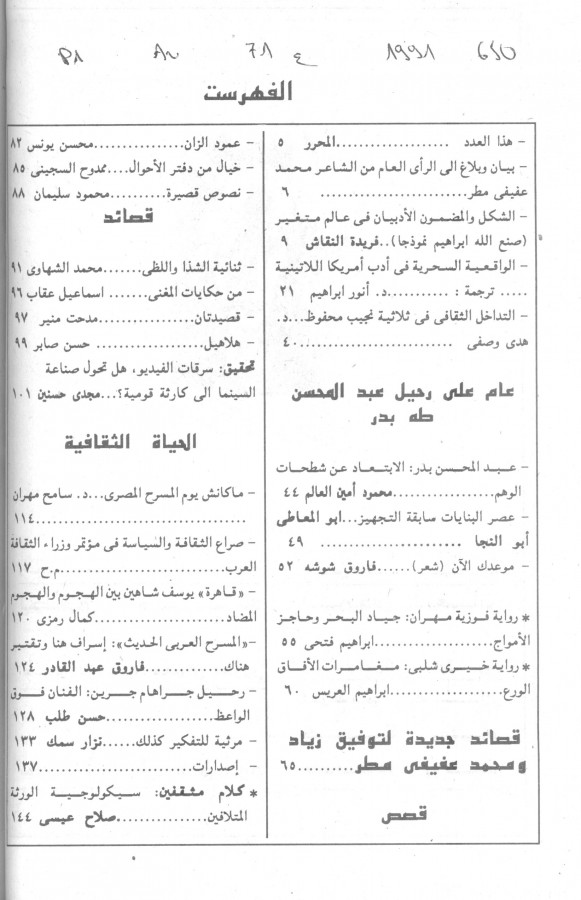 P1 An 71 ع 1991 650
الفهرست
- هذا العدد ................... المحرر ٥
- بيان وبلاغ الى الرأى العام من الشاعر محمد
عفيفى مطر......................... ٦
- الشكل والمضمون الأدبيان فى عالم متغير
(صنع الله ابراهيم نموذجا)..فريدة النقاش ٩
- الواقعية السحرية فى أدب أمريكا اللاتينية
..... ترجمة : ...........د. أنور ابراهيم ٢١
- التداخل الثقافى فى ثلاثية نجيب محفوظ...د.
هدى وصفى .......................... ٤٠
عام على رحيل عبد المحسن
طه بدر
- عبد المحسن بدر: الابتعاد عن شطحات
الوهم.................محمود أمين العالم ٤٤
- عصر البنايات سابقة التجهيز...ابو المعاطى
أبو النجا ........................ ٤٩
- موعدك الآن (شعر)......فاروق شوشه ٥٢
* رواية فوزية مهران: جياد البحر وحاجز
الأمواج...................ابراهيم فتحى ٥٥
* رواية خيرى شلبى: مغامرات الأفاق
الورع...................ابراهيم العريس ٦٠
قصائد جديدة لتوفيق زياد
ومحمد عفيفى مطر..........٦٥
قصص
- عمود الزان................محسن يونس ٨٢
- خيال من دفتر الأحوال....ممدوح السجينى ٨٥
- نصوص قصيرة...........محمود سليمان ٨٨
قصائد
- ثنائية الشذا واللظى.......محمد الشهاوى ٩١
- من حكايات المغنى....... اسماعيل عقاب ٩٦
- قصيدتان..............مدحت منير ٩٧
- هلاهيل................ حسن صابر ٩٩
تحقيق: سرقات الفيديو، هل تحول صناعة
السينما الى كارثة قومية؟...مجدى حسنين ١٠١
الحياة الثقافية
- ماكانش يوم المسرح المصرى...د. سامح مهران
............................ ١١٤
- صراع الثقافة والسياسة فى مؤتمر وزراء الثقافة
العرب......................م.ح ١١٧
- «قاهرة» يوسف شاهين بين الهجوم والهجوم
المضاد...................كمال رمزى ١٢٠
-«المسرح العربى الحديث»: إسراف هنا وتقتير
هناك..............فاروق عبد القادر ١٢٤
- رحيل جراهام جرين: الفنان فوق
الواعظ................حسن طلب ١٢٨
- مرثية للتفكير كذلك......نزار سمك ١٣٣
- إصدارات.......................١٣٧
* كلام مثقفين: سيكولوجية الورثة
المتلافين...............صلاح عيسى ١٤٤